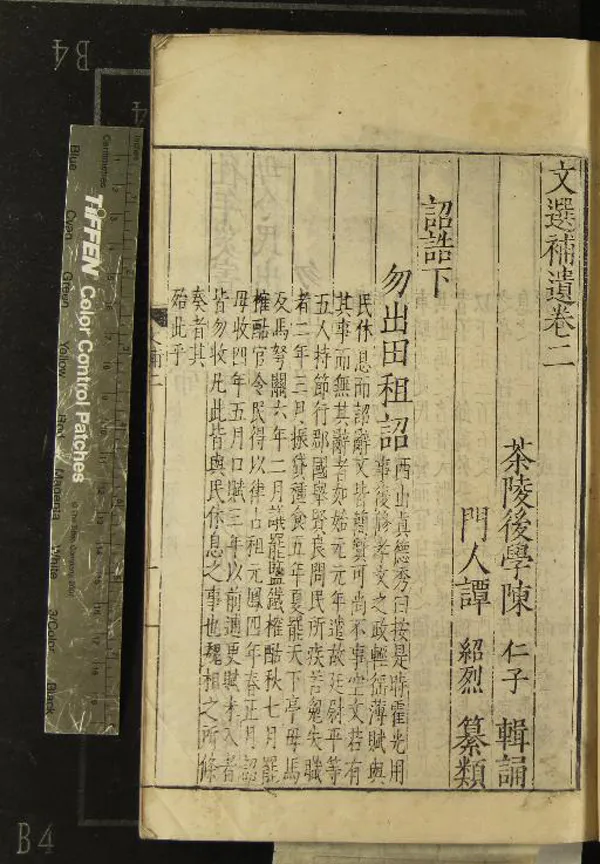 文選補遺卷二
茶陵後學陳 仁子 輯誦
門人譚 紹烈 纂類
詔誥下
勿出田租詔
西山真德秀曰按是時霍光用
事後脩孝文之政輕徭薄賦與
民休息而詔辭文皆簡質可尚不事空文若有
其事而無其辭者如始元元年遣故廷尉平等
五人持節行郡國舉賢良問民所疾苦冤失職
者二年三月振貸種食五年夏罷天下亭母馬
及馬弩關六年二月議罷鹽鐵榷酤秋七月罷
榷酤官令民得以律占租元鳳四年春正月詔
毋收四年五月口賦三年以前逋更賦未入者
皆勿收凡此皆與民休息之事也魏相之所條
奏者其
殆此乎
文補二
一
TIFFEN Color Control Patches
Centimetres
Inches
Blue
Cyan
Green
Yellow
Red
Magenta
White
3/Color
Black
B4
B4
4